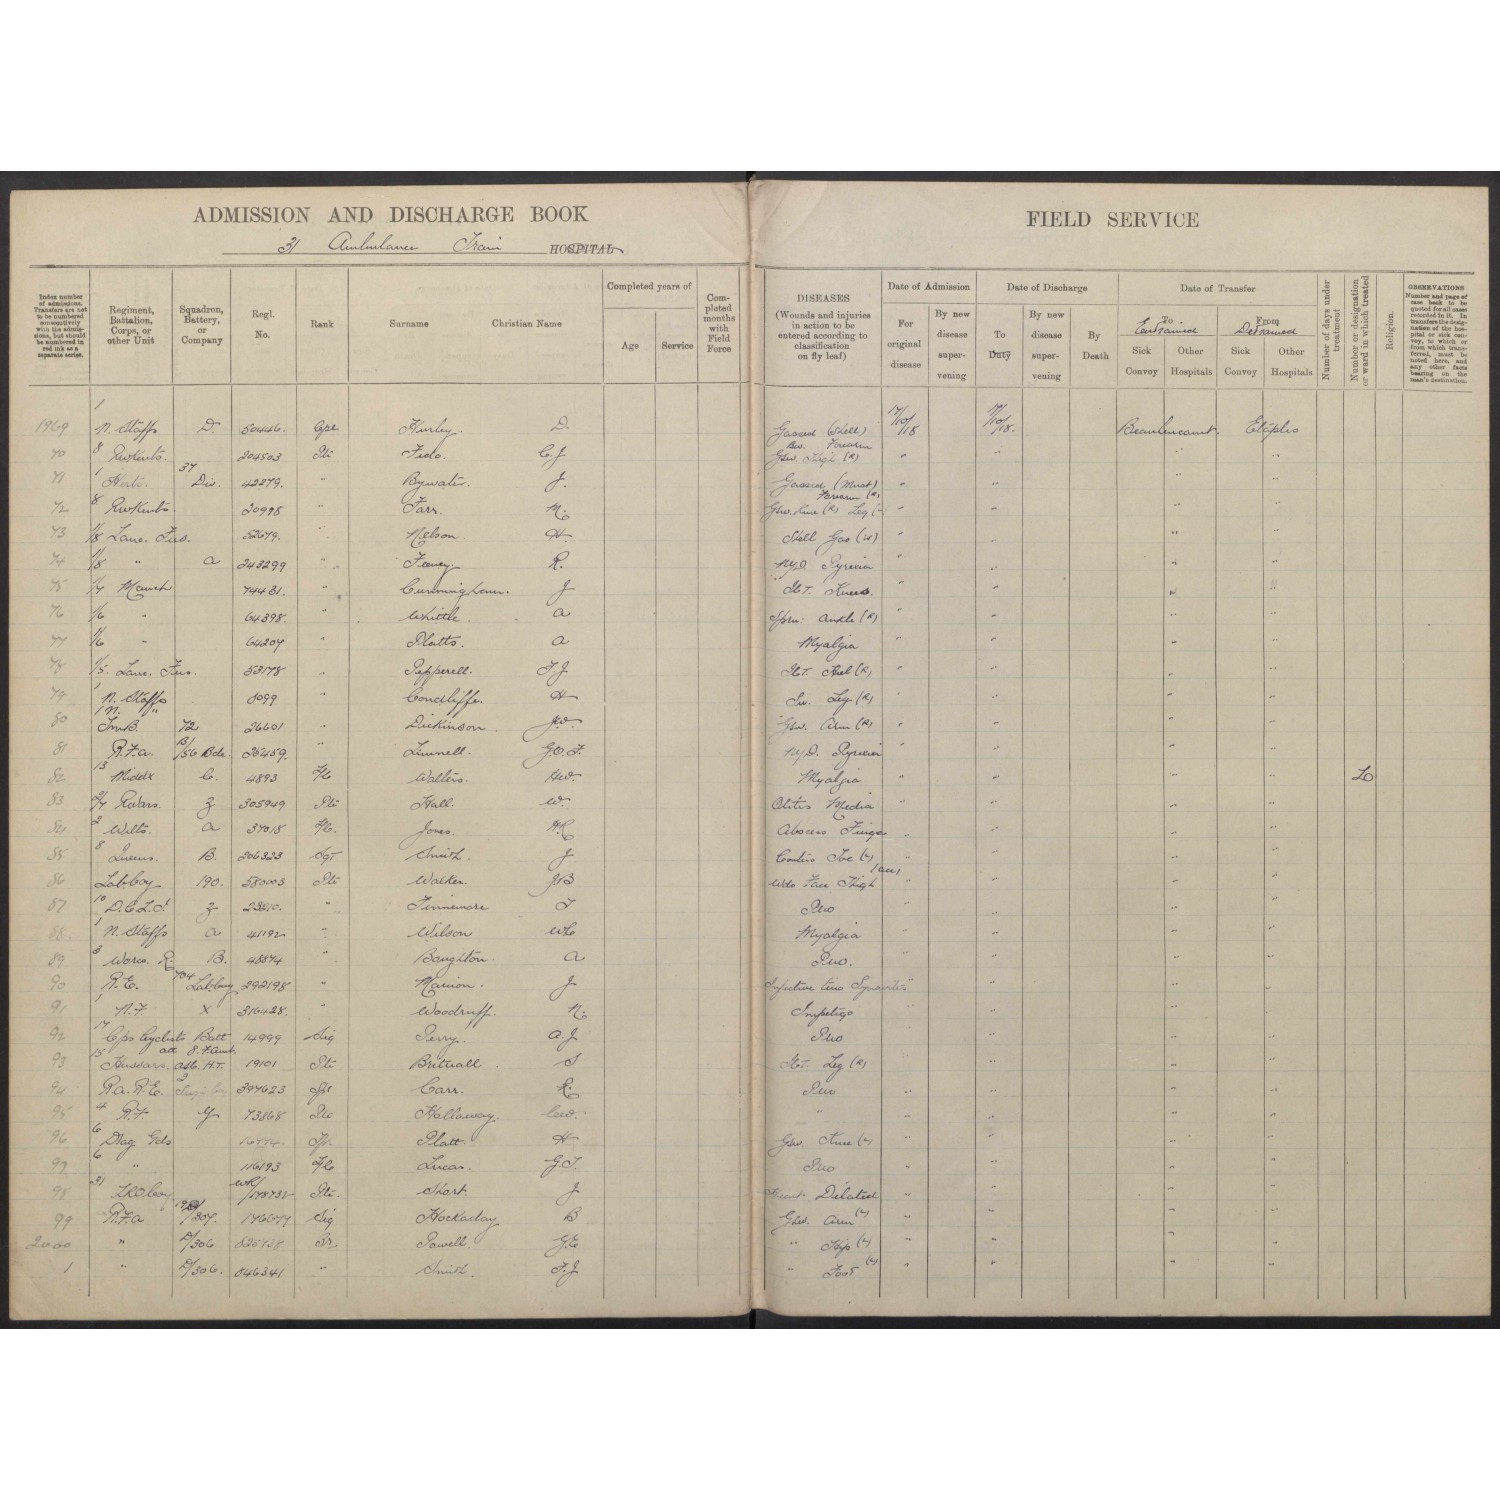 ADMISSION AND DISCHARGE BOOK
31 Ambulance Train HOSPITAL
FIELD SERVICE
Index number of admissions. Transfers are not to be numbered consecutively with the admissions, but should be numbered in red ink as a separate series.
Regiment, Battalion, Corps, or other Unit
Squadron, Battery, or Company
Regl. No.
Rank
Surname
Christian Name
Completed years of
Age
Service
Completed months with Field Force
DISEASES
(Wounds and injuries in action to be entered according to classification on fly leaf)
Date of Admission
For original disease
By new disease supervening
Date of Discharge
To Duty
By new disease supervening
By Death
Date of Transfer
To Entrained
From Detrained
Sick Convoy
Other Hospitals
Sick Convoy
Other Hospitals
Number of days under treatment
Number or designation or ward in which treated
Religion.
OBSERVATIONS
Number and page of case book to be quoted for all cases recorded in it. In transfers the designation of the hospital or sick convoy, to which or from which transferred, must be noted here, and any other facts bearing on the man's destination.
1969 1 N. Staffs D. 50446 Cpl Hurley. D. Gassed (Shell) 17/10/18 17/10/18. Beaulencourt. Etaples
70 8 RWKents. 204503 Pte Fido. C.J Gsw. Thigh (R) Forearm " " " "
71 1 Herts. 37 Div. 42279. " Bywater. J. Gassed (Must) " " " "
72 8 RWKents 20998 " Farr. M. Gsw. Knee (R) Leg Forearm (R) " " " "
73 1/8 Lanc. Fus. 52679. " Nelson. H. Shell Gas (W) " " " "
74 1/8 " A 243299 " R. NYD. Pyrexia " " " "
75 1/7 Manch 74431. " Cunningham. J I.C.T. Knees. " " " "
76 1/6 " 64398. " Whittle. A Sprn: Ankle (R) " " " "
77 1/6 " 64207 " Platts. A Myalgia " " " "
78 1/5. Lanc. Fus. 53178 " Pepperell. T.J I.C.T. Heel (R) " " " "
79 1 N. Staffs 8099 Condliffe. H Sw. Leg. (R) " " " "
80 1 N. " T.M.B. 72 26601 " Dickinson. J.W. Gsw. Arm (R) " " " "
81 R.F.A. B/156 Bde. 25459. " Linnell. G.O.F. NYD. Pyrexia " " " "
82 13 Middlx C. 4893 L/C Walters. H.W. Myalgia " " " " LO
83 2/7 RWars. Z 305949 Pte Hall. W. Otitis Media " " " "
84 2 Wilts. A 37018 L/C. Jones. H.R Abscess Finger " " " "
85 8 Queens. B. 206323 Sgt Smith. J Contus Toe (L) " " " "
86 Lab. Coy 190. 580003 Pte Walker. J.B Wds Face Thigh (acc) " " " "
87 10 D.C.L.I. Z " Finnemore T Puo " " " "
88 1 N. Staffs A 41192 " Wilson W.C Myalgia " " " "
89 3 Worcs. R. B. 48874 " Boughton. A Puo. " " " "
90 R.E. 704 Lab. Coy 292198 " Marion. J Infective Teno Synovitis " " " "
91 1 N.F X 316428. " Woodruff. N. Impetigo " " " "
92 17 Cps Cyclists Batt 14999 Sig Perry. A.J Puo " " " "
93 15 Hussars. att 8. F. Amb. ASC. H.T. 19101 Pte Britnall S I.C.T. Leg (R) " " " "
94 R.A. R.E. 397623 Spr Carr. R. Puo " " " "
95 4 R.F Y 73868 Pte Hallaway. C.W. " " " " "
96 6 Drag Gds Platt. H Gsw. Knee (L) " " " "
97 6 " 116193 L/C Lucas. G.T. Puo " " " "
98 31 L.R.O. Coy WR/178732 Pte. Short. J Heart Dilated " " " "
99 R.F.A /307. 176677 Sig Hockaday B Gsw. Arm (L) " " " "
2000 " D/306 826738 Dr. Powell. G.E " Hip (L) " " " "
1 " D/306. 846341 " Smith. F.J " Foot (L) " " " "